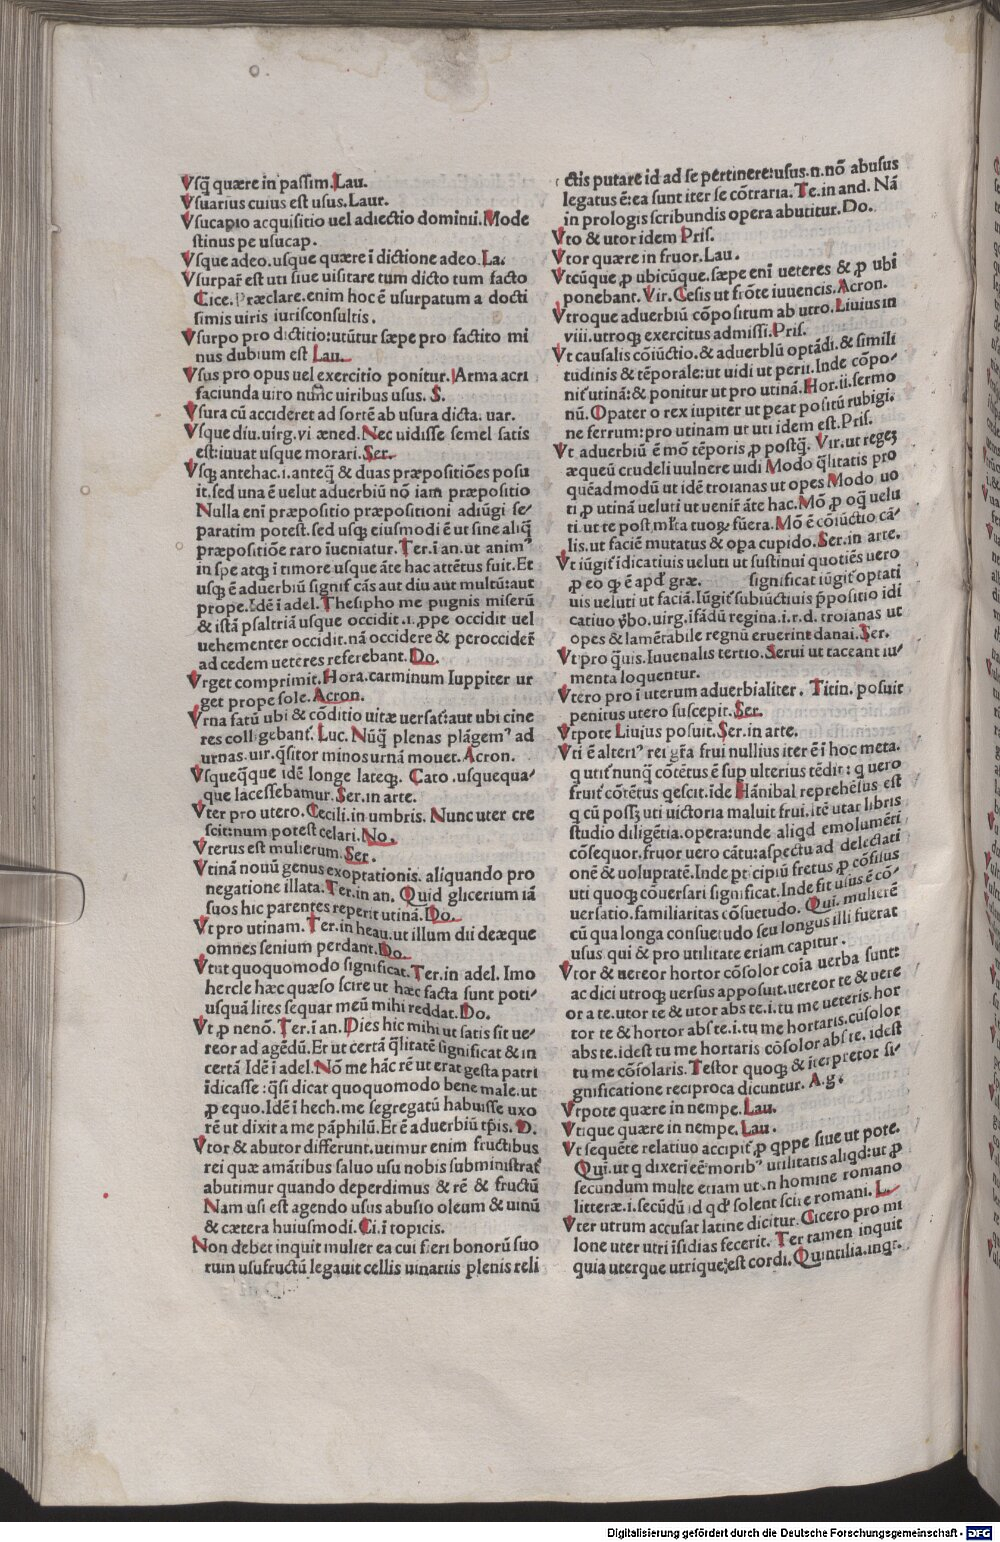 Vsq̃ quære in passim. Lau.
Vsuarius cuius est usus. Laur.
Vsucapio acquisitio uel adiectio dominii. Mode
stinus pe usucap.
Vsque adeo. usque quære ī dictione adeo. La.
Vsurpar̃ est uti siue uisitare tum dicto tum facto
Cice. Præclare. enim hoc ē usurpatum a docti
simis uiris iurisconsultis.
Vsurpo pro dictitio: utūtur sæpe pro factito mi
nus dubium est Lau.
Vsus pro opus uel exercitio ponitur. Arma acri
faciunda uiro nunc uiribus usus. S.
Vsura cū accideret ad sortē ab usura dicta. uar.
Vsque diu. uirg. vi æned. Nec uidisse semel satis
est: iuuat usque morari. Ser.
Vsq; antehac. i. anteq̃ & duas præpositiões posu
it. sed una ē uelut aduerbiū nō iam præpositio
Nulla eni præpositio præpositioni adiūgi se⸗
paratim potest. sed usq; eiusmodi ē ut sine aliq̃
præpositiōe raro īueniatur. Ter. ī an. ut animꝰ
in spe atq; ī timore usque āte hac attētus fuit. Et
usq; ē aduerbiū signif cās aut diu aut multū: aut
prope. Idē ī adel. Thesipho me pugnis miserū
& istā psaltriā usque occidit. ı. ꝓpe occidit uel
uehementer occidit. nā occidere & peroccider̃
ad cedem ueteres referebant. Do.
Vrget comprimit. Hora. carminum Iuppiter ur
get prope sole. Acron.
Vrna fatū ubi & cōditio uitæ uersat̃: aut ubi cine
res colligebant̃. Luc. Nūq̃ plenas plāgemꝰ ad
urnas. uir. q̃sitor minos urnā mouet. Acron.
Vsqueq̃que idē longe lateq;. Cato. usquequa⸗
que lacessebamur. Ser. in arte.
Vter pro utero. Cecili. in umbris. Nunc uter cre
scit: num potest celari. No.
Vterus est mulierum. Ser.
Vtinā nouū genus exoptationis. aliquando pro
negatione illata. Ter. in an. Quid glicerium iā
suos hic parentes reperit utinā. Do.
Vt pro utinam. Ter. in heau. ut illum dii deæque
omnes senium perdant. Do.
Vtut quoquomodo significat. Ter. in adel. Imo
hercle hæc quæso scire ut hæc facta sunt poti⸗
usquā lites sequar meū mihi reddat. Do.
Vt ꝓ nenō. Ter. ī an. Dies hic mihi ut satis sit ue⸗
reor ad agēdū. Et ut certā q̃litatē significat & in
certā Idē ī adel. Nō me hāc rē ut erat gesta patri
īdicasse: q̃si dicat quoquomodo bene male. ut
ꝓ equo. Idē ī hech. me segregatū habuisse uxo
rē ut dixit a me pāphilū. Et ē aduerbiū tp̄is. D.
Vtor & abutor differunt. utimur enim fructibus
rei quæ amātibus saluo usu nobis subministrat̃
abutimur quando deperdimus & rē & fructū
Nam usi est agendo usus abusio oleum & uinū
& cætera huiusmodi. Ci. ī topicis.
Non debet inquit mulier ea cui fieri bonorū suo
rum usufructū legauit cellis uinariis plenis reli
ctis putare id ad se pertinere: usus. n. nō abusus
legatus ē: ea sunt iter se cōtraria. Te. in and. Nā
in prologis scribundis opera abutitur. Do.
Vto & utor idem Pris.
Vtor quære in fruor. Lau.
Vtcūque ꝓ ubicūque. sæpe eni ueteres & ꝓ ubi
ponebant. Vir. Cesis ut frōte iuuencis. Acron.
Vtroque aduerbiū cōpositum ab utro. Liuius in
viii. utroq; exercitus admissi. Pris.
Vt causalis cōiūctio. & aduerbiū optādi. & simili
tudinis & tēporale: ut uidi ut perii. Inde cōpo⸗
nit̃ utinā: & ponitur ut pro utinā. Hor. ii. sermo
nū. O pater o rex iupiter ut peat positū rubigi.
ne ferrum: pro utinam ut uti idem est. Pris.
Vt aduerbiū ē mō tēporis ꝓ postq̃. Vir. ut regez
æqueū crudeli uulnere uidi Modo q̃litatis pro
quēadmodū ut idē troianas ut opes Modo uo
ti ꝓ utinā ueluti ut uenir̃ āte hac. Mō ꝓ oq̃ uelu
ti. ut te post ml̄ta tuoꝝ fūera. Mō ē cōiūctio cā⸗
lis. ut faciē mutatus & opa cupido. Ser. in arte.
Vt iūgit̃ īdicatiuis ueluti ut sustinui quotiēs uero
ꝓ eo q; ē apd̃ græ. significat iūgit̃ optati
uis ueluti ut faciā. Iūgit̃ subiūctiuis p̄positio idi
catiuo v̄bo. uirg. ifādū regina. i. r. d. troianas ut
opes & lamētabile regnū eruerint danai. Ser.
Vt pro q̃uis. Iuuenalis tertio. Serui ut taceant iu⸗
menta loquentur.
Vtero pro ī uterum aduerbialiter. Titin. posuit
penitus utero suscepit. Ser.
Vtpote Liuius posuit. Ser. in arte.
Vti ē alteriꝰ rei gr̄a frui nullius iter ē ī hoc meta.
q utit̃ nunq̃ cōtētus ē sup ulterius tēdit: q uero
fruit̃ cōtētus qescit. īde Hānibal reprehēsus est
q cū possꝫ uti uictoria maluit frui. itē utar libris
studio diligētia. opera: unde aliqd emolumēti
cōsequor. fruor uero cātu: aspectu ad delectati
onē & uoluptatē. Inde pticipiū fretus ꝓ cōsilus
uti quoq; cōuersari significat. Inde fit usus ē cō⸗
uersatio. familiaritas cōsuetudo. Qui. mulierē
cū qua longa consuetudo seu longus illi fuerat
usus qui & pro utilitate etiam capitur.
Vtor & uereor hortor cōsolor coīa uerba sunt:
ac dici utroq; uersus apposuit. uereor te & uere
or a te. utor te & utor abs te. i. tu me ueteris. hor
tor te & hortor abs te. i. tu me hortaris. cūsolor
abs te. idest tu me hortaris cōsolor abs te. idest
tu me cōsolaris. Testor quoq; & iterpretor si⸗
gnificatione reciproca dicuntur. A. g.
Vtpote quære in nempe. Lau.
Vtique quære in nempe. Lau.
Vt sequēte relatiuo accipit̃ ꝓ qppe siue ut pote.
Qui. ut q dixeri eē moribꝰ utilitatis aliqd: ut ꝓ
secundum multe etiam ut. n homine romano
litteræ. i. secūdū id qd̃ solent scire romani. L.
Vter utrum accusat latine dicitur. Cicero pro mi
lone uter utri īsidias fecerit. Ter tamen inquit
quia uterque utrique est cordi. Quintilia. ingr.
Digitalisierung gefördert durch die Deutsche Forschungsgemeinschaft - DFG